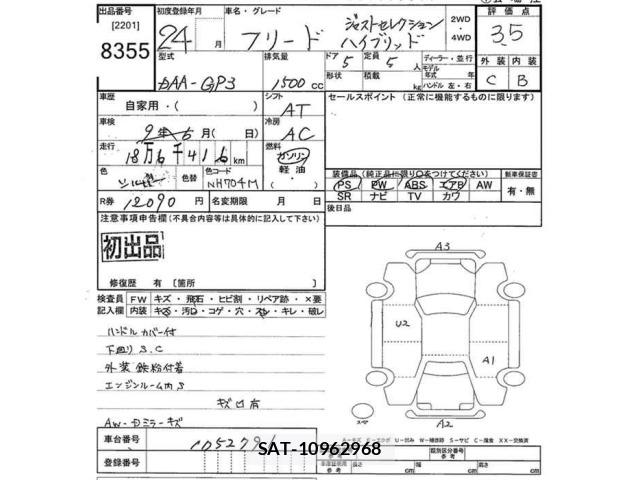 出品番号 初度登録年月 車名・グレード 評価点
[2201] 24 月 フリード ジャストセレクション 2WD 3.5
8355 ハイブリッド ・4WD
型式 排気量 ドア 5 定員 5 人 ディーラー・並行 外装 内装
DAA-GP3 1500 cc 形状 積載 kg モデル年式 年 ハンドル 左・右 C B
車歴 シフト セールスポイント (正常に機能するものに限ります)
自家用・( ) AT
車検 冷房
9年 5月( 日) AC
走行 燃料
18万6千416 km ガソリン
色 シルバー 色替 色コード NH704M 軽油 装備品 (純正品に限り○をつけてください) 新車保証書
PS PW ABS エアB AW 有・無
SR ナビ TV カワ
R券 12090 円 名変期限 月 日 後日品
注意事項申告欄(不具合内容等は具体的に記入して下さい)
初出品
修復歴 有 [箇所 ]
A3
検査員 FW キズ・飛石・ヒビ割・リペア跡・×要
記入欄 内装 キズ・汚れ・コゲ・穴・スレ・キレ・破レ
U2
ハンドルカバー付
下廻り S.C
A1
外装鉄粉付着
エンジンルーム内 S
キズ凹有
AW・Dミラーキズ
A2
車台番号
SAT-10962968
登録番号 長さ cm 幅 cm 高さ cm